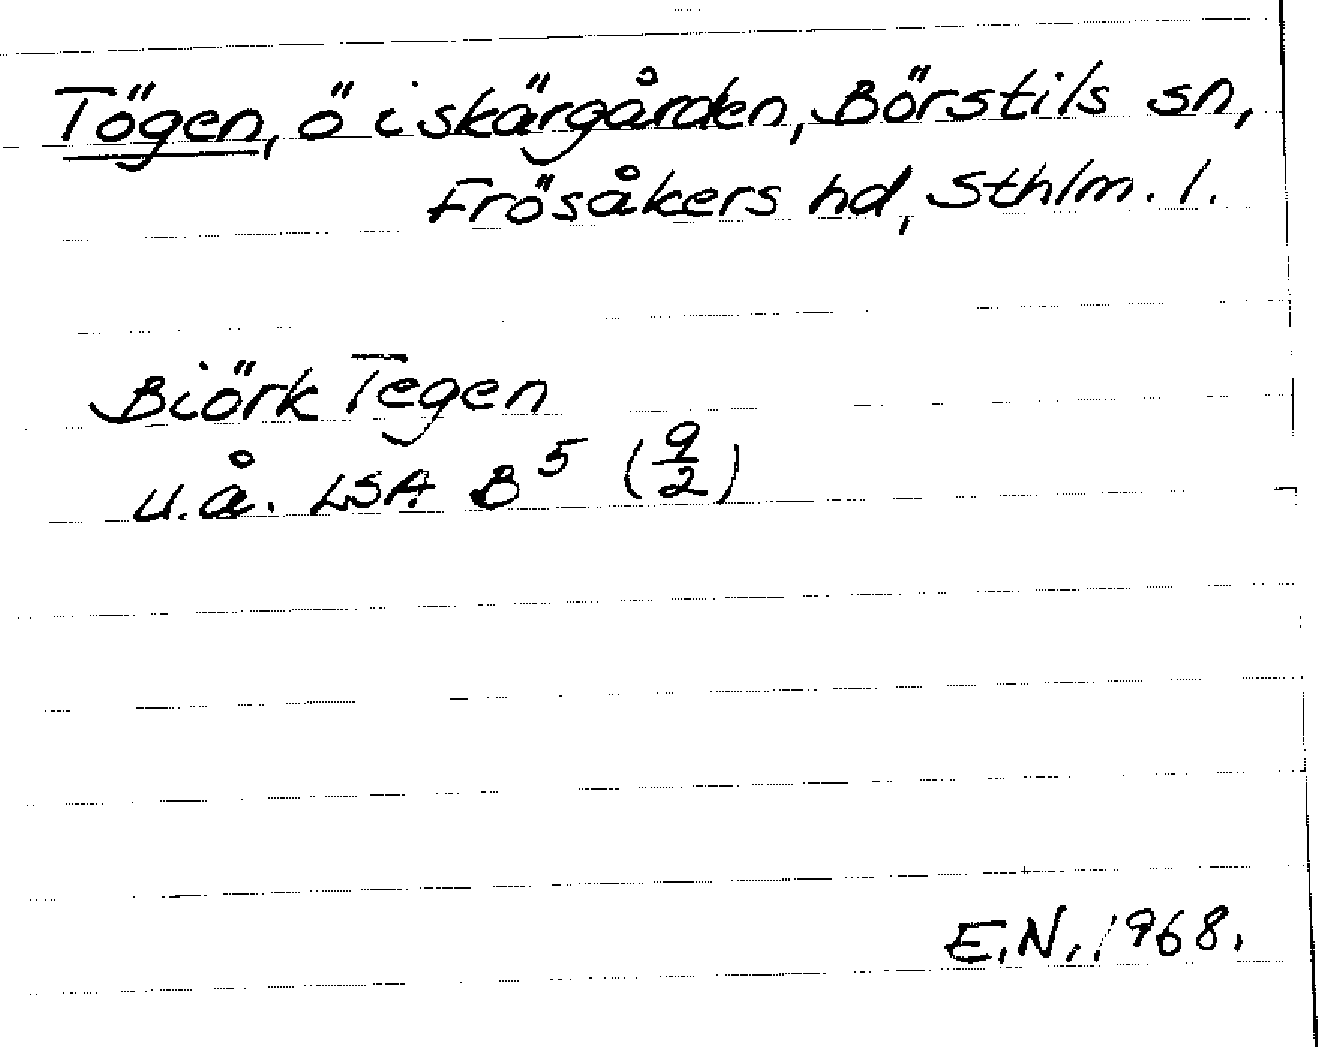 Tögen, ö i skärgården, Börstils sn,
Frösåkers hd, Sthlm. l.
Biörk Tegen
u.å. LSA B⁵ (9/2)
E.N. 1968.